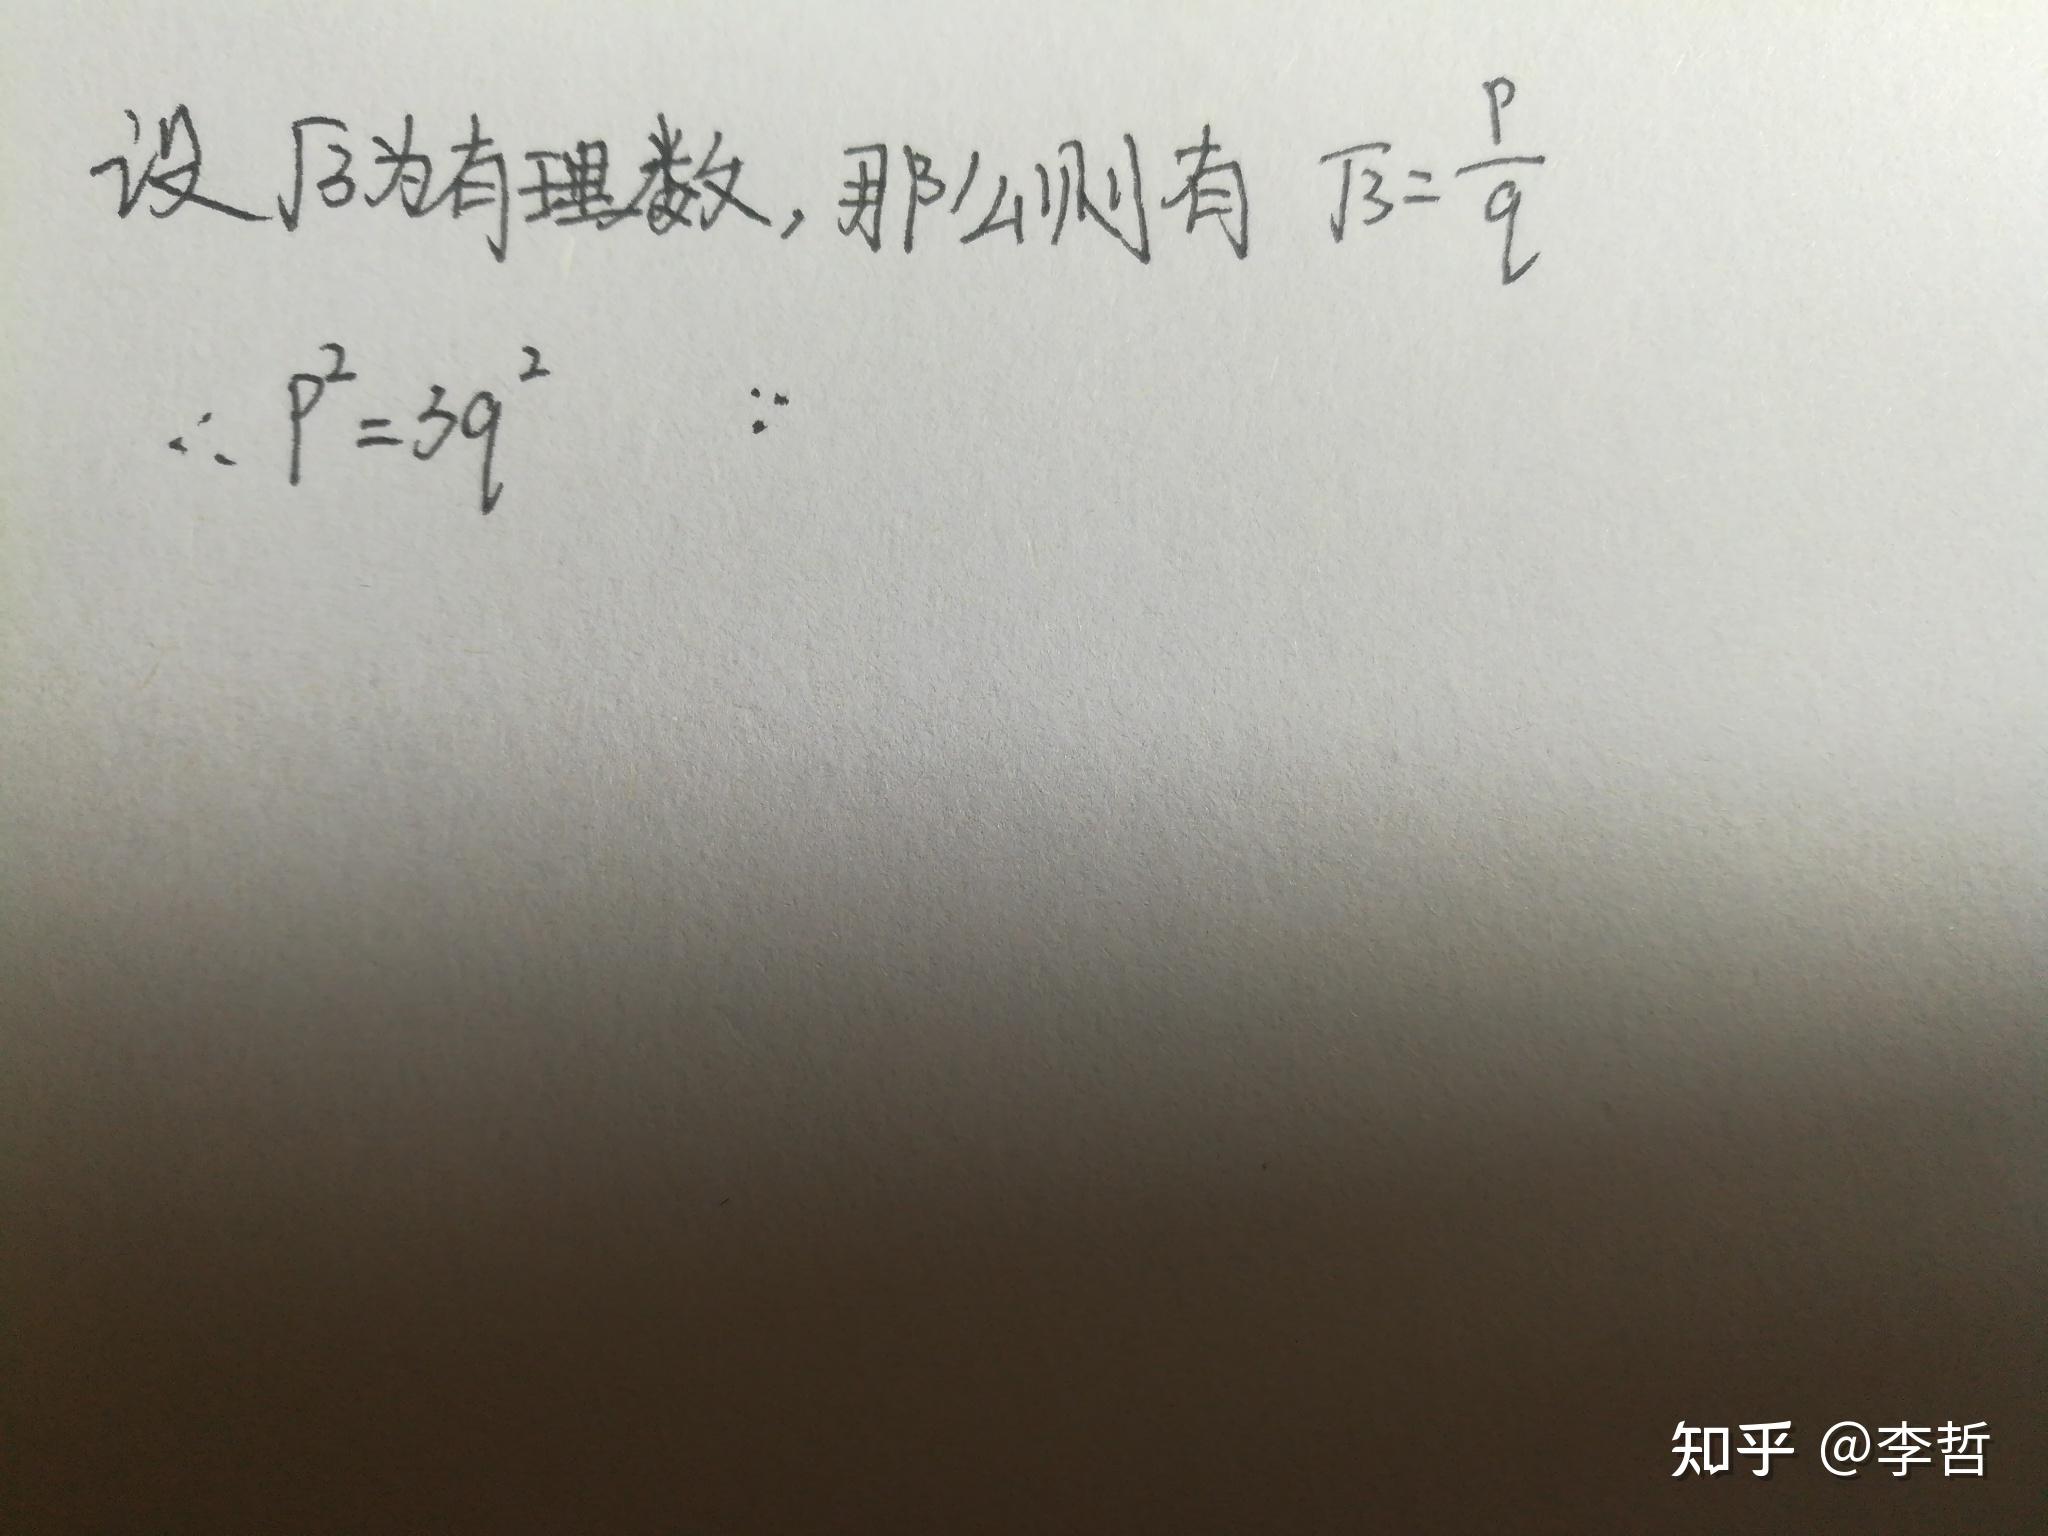 设√3为有理数,那么则有 √3=p/q
∴ p²=3q² ∵
知乎 @李哲